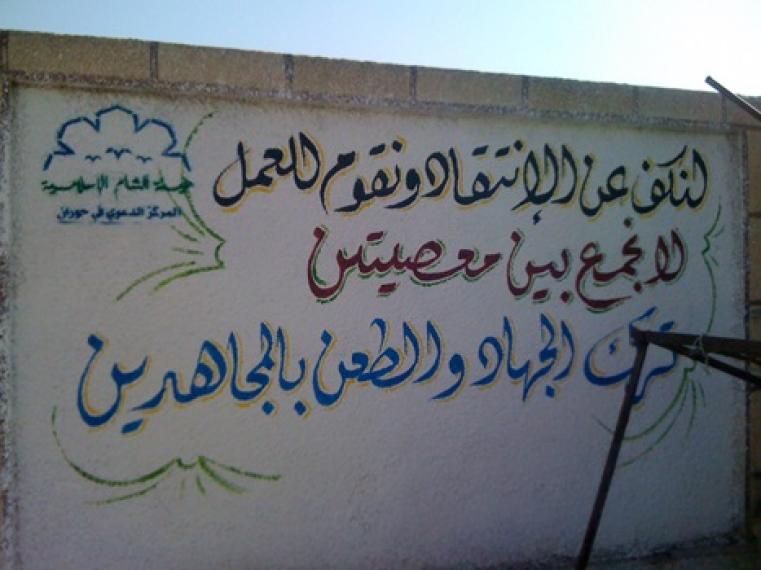 هيئة الشام الإسلامية
المركز الدعوي في حوران
لنكف عن الإنتقاد ونقوم للعمل
لا نجمع بين معصيتين
ترك الجهاد والطعن بالمجاهدين